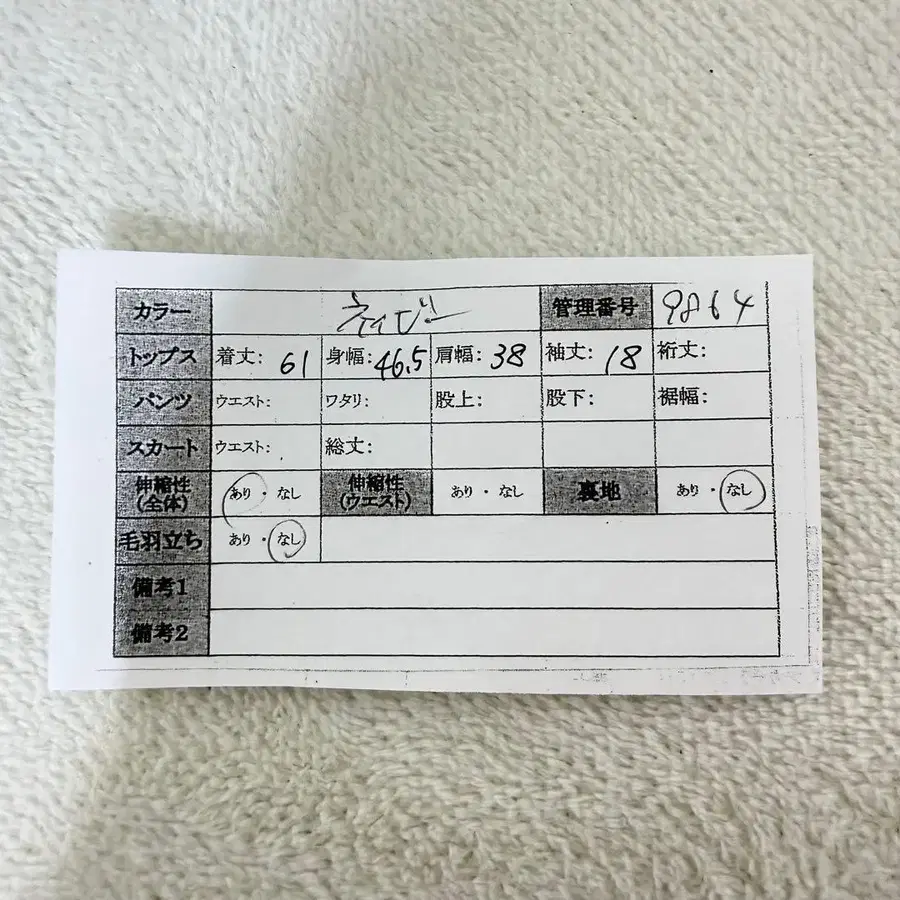 カラー ネイビー 管理番号 9864
トップス 着丈: 61 身幅: 46.5 肩幅: 38 袖丈: 18 裄丈:
パンツ ウエスト: ワタリ: 股上: 股下: 裾幅:
スカート ウエスト: 総丈:
伸縮性(全体) あり ・ なし 伸縮性(ウエスト) あり ・ なし 裏地 あり ・ なし
毛羽立ち あり ・ なし
備考1
備考2